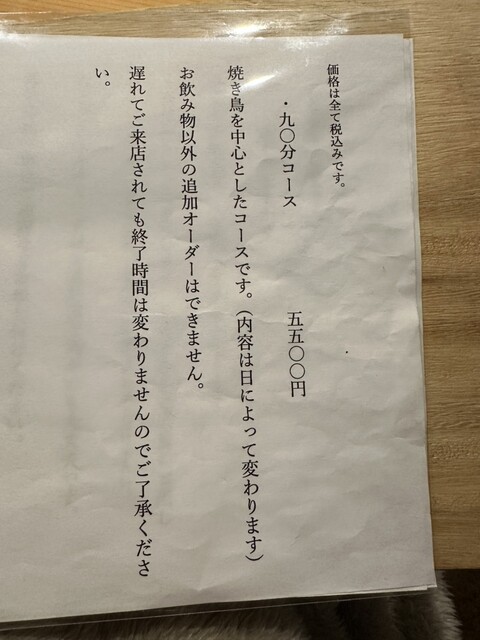 価格は全て税込みです。
・九〇分コース　五五〇〇円
焼き鳥を中心としたコースです。（内容は日によって変わります）
お飲み物以外の追加オーダーはできません。
遅れてご来店されても終了時間は変わりませんのでご了承くださ
い。